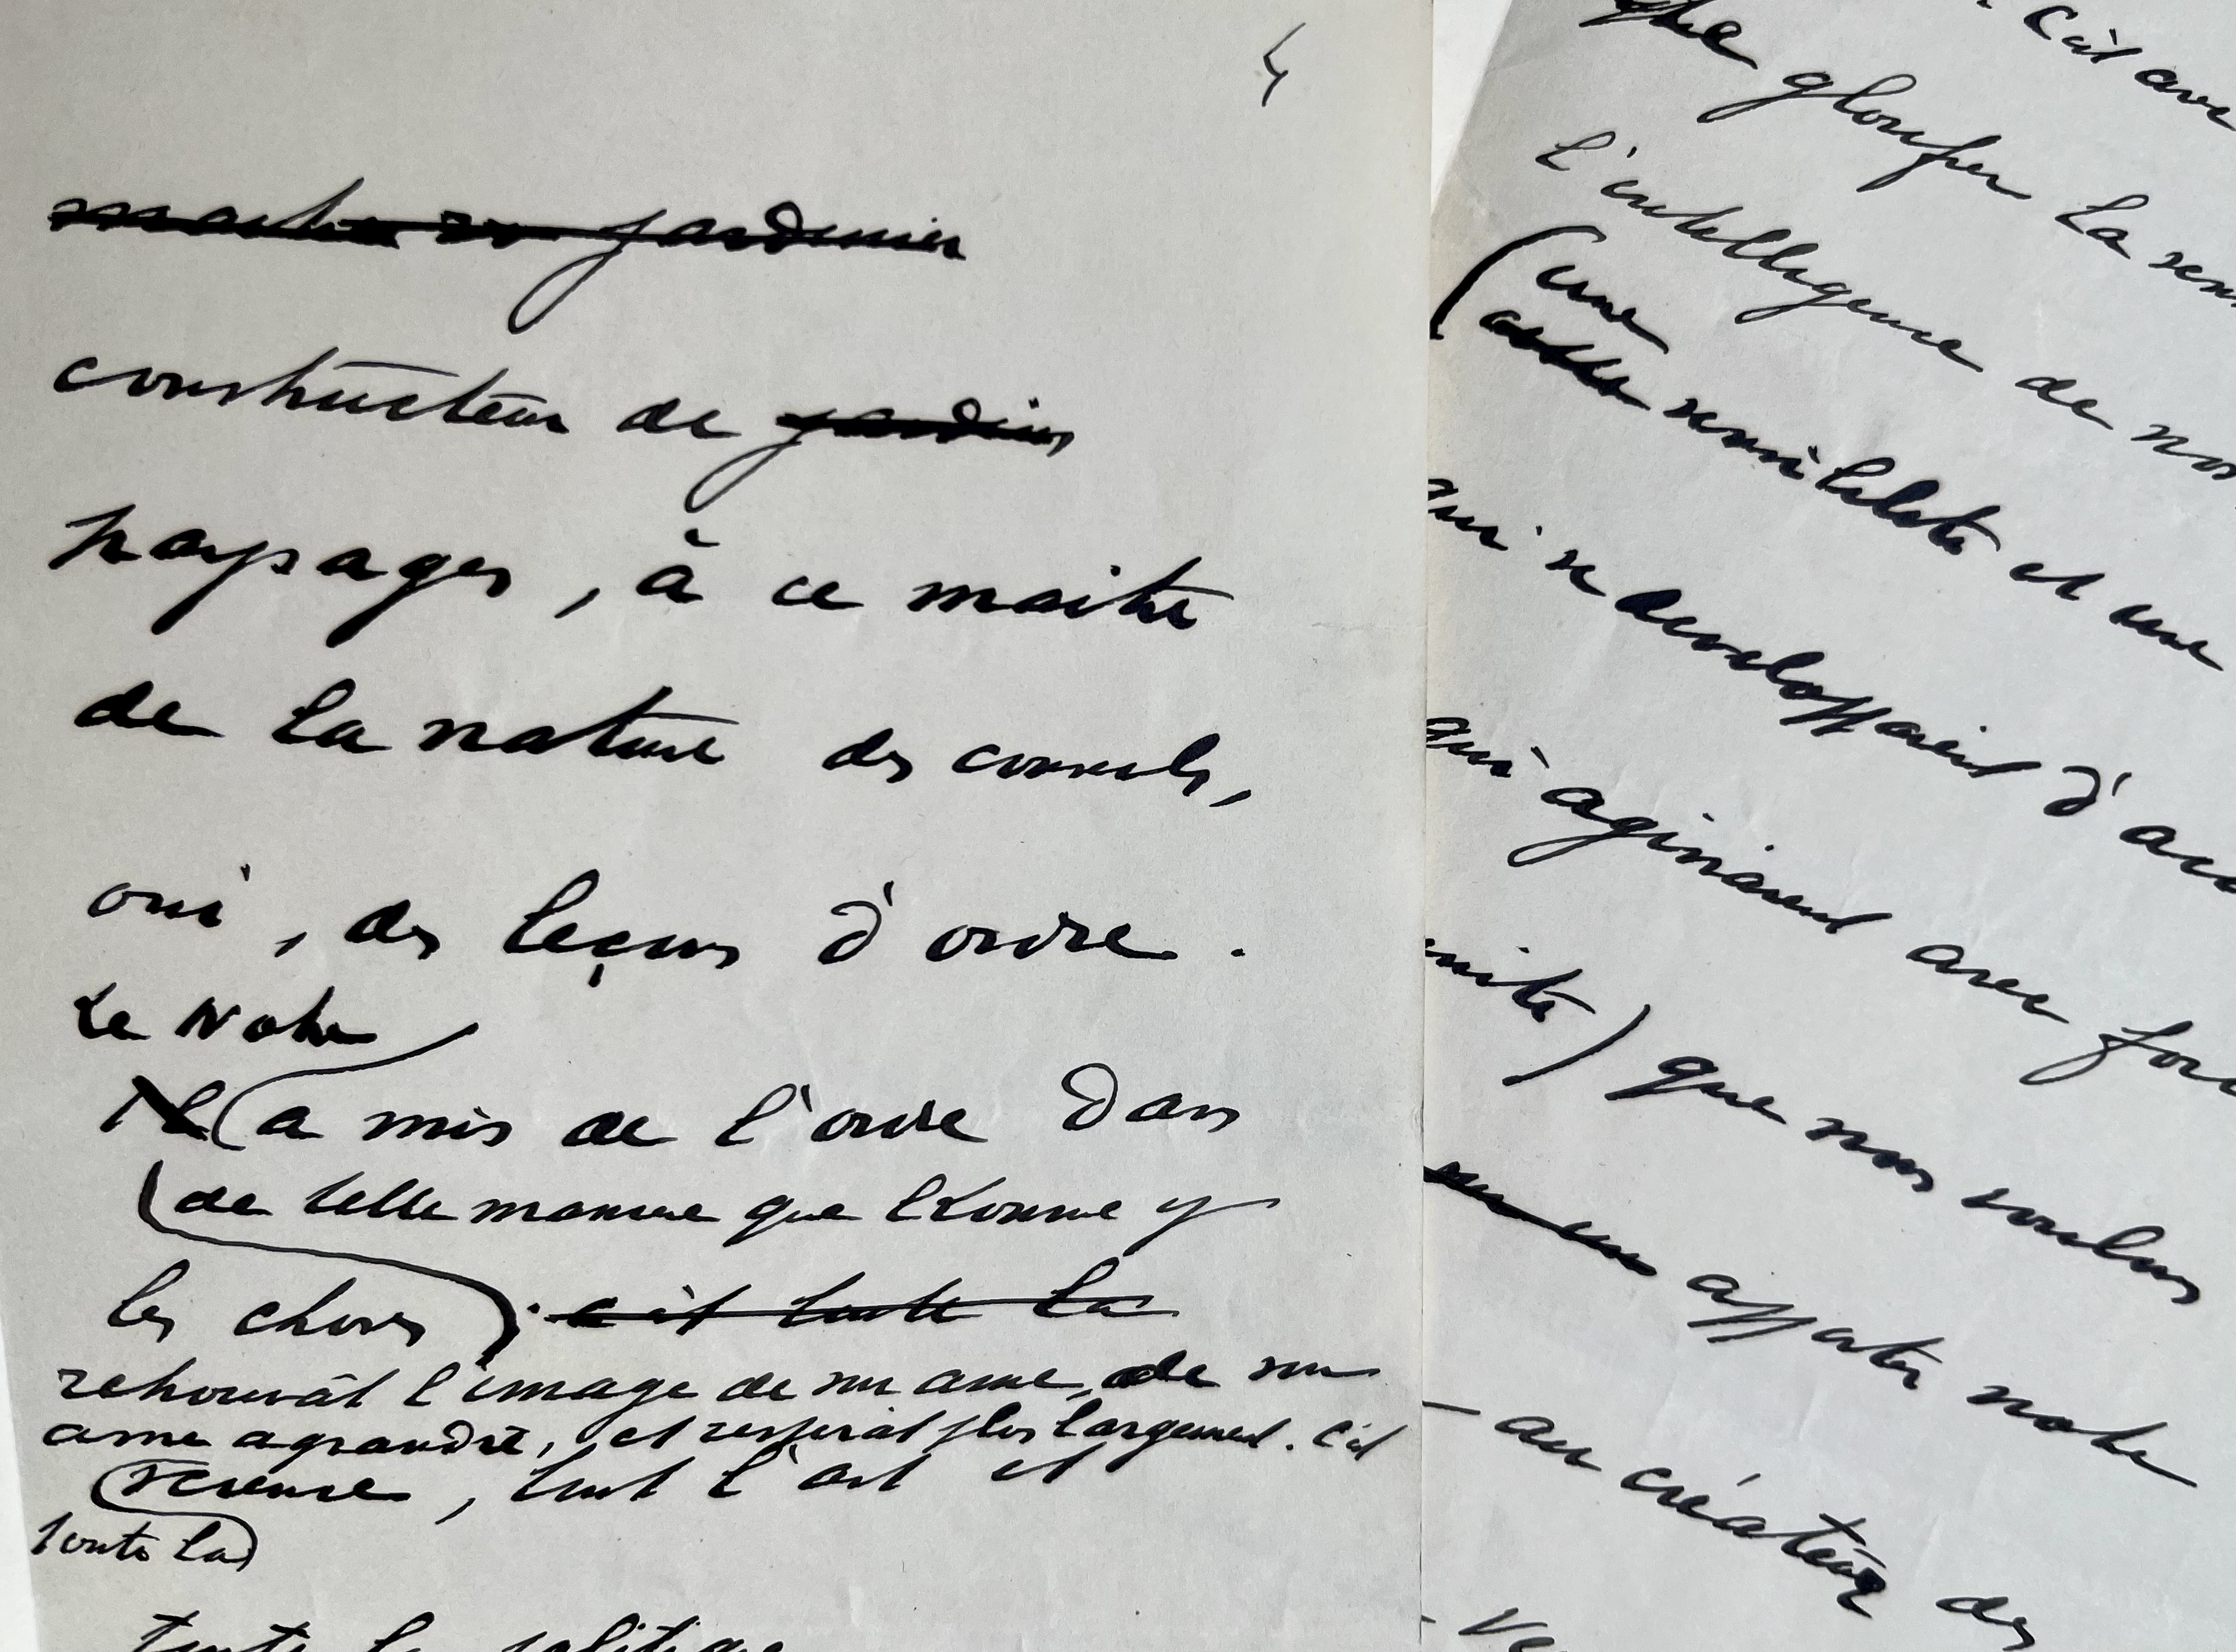 4
jardinier
constructeur de jardins
paysages, à ce maître
de la nature des conseils,
oui, des leçons d'ordre.
Le Notre
Il a mis de l'ordre dans
de telle manière que l'homme y
les choses. c'est toute la
retrouvât l'image de son ame, de son
ame agrandie, et respirât plus largement. C'est
science, tout l'art et
toute la
toute la politique
c'est avec
glorifier la
l'intelligence de nos
(une
sensibilité et une
qui se developpaient d'
qui agissaient avec
) que nous voulons
apporter notre
au créateur des